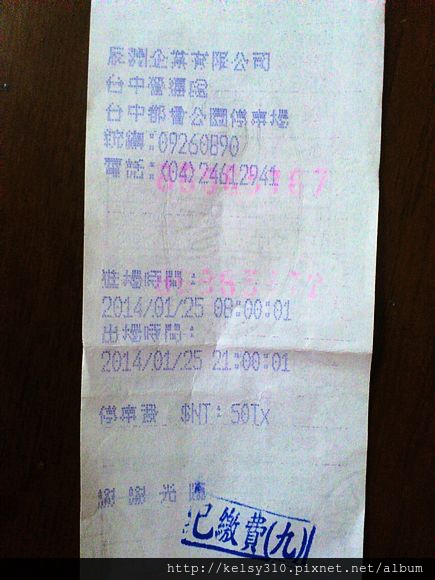 辰淵企業有限公司
台中營運處
台中都會公園停車場
統編:09260890
電話:(04)24612941
進場時間:
2014/01/25 08:00:01
出場時間:
2014/01/25 21:00:01
停車費 $NT: 50Tx
謝 謝 光 臨
已繳費(九)
http://kelsy310.pixnet.net/album